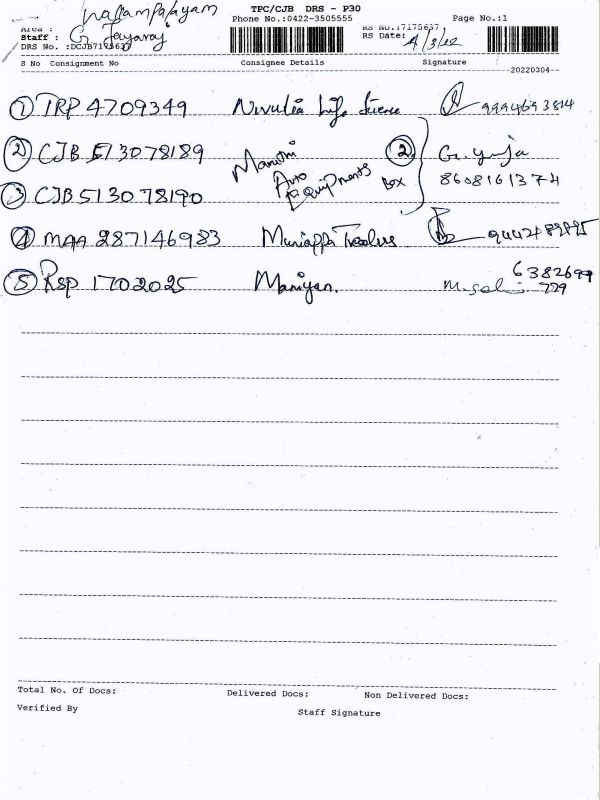 TPC/CJB DRS - P30
Nallampalayam
Phone No.:0422-3505555 Page No.:1
Area :
Staff : G. Jayaraj
RS No.:7175637
RS Date: 4/3/22
DRS No. :DCJB7175637
S No Consignment No Consignee Details Signature
20220304
1 TRP 4709349 Life Science 9994693814
2 CJB 513078189 Maruthi Auto Equipments 2 Box
8608161374
3 CJB 513078190
4 MAA 287146983 Muniappa Traders
5 RSP 1702025 Maniyan. 6382699
779
Total No. Of Docs: Delivered Docs: Non Delivered Docs:
Verified By Staff Signature